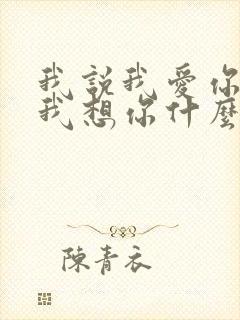 我說我愛你
我想你什麼
陳青衣